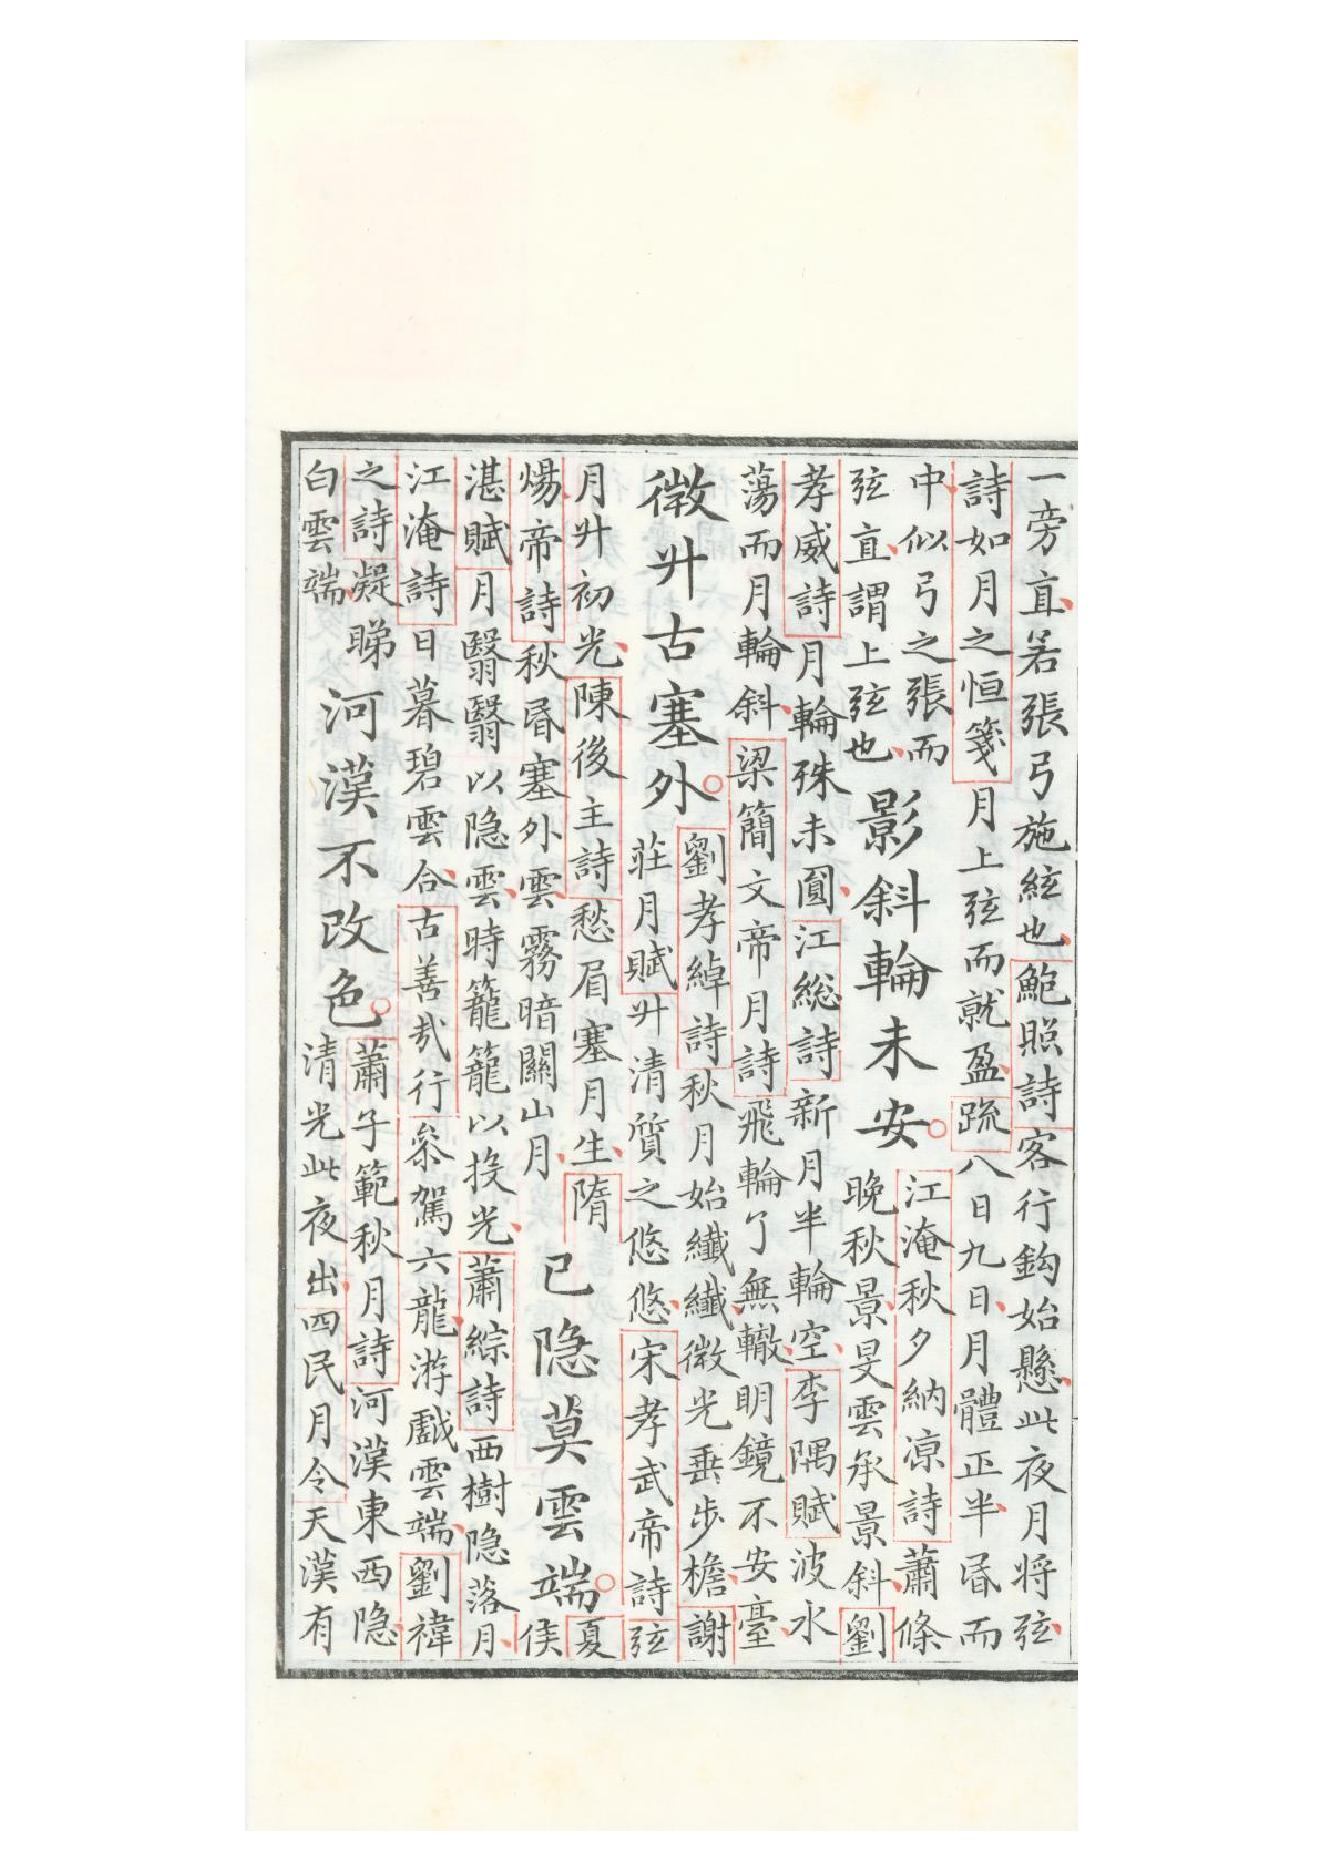 一旁直若張弓施絃也鮑照詩客行鈎始懸此夜月将弦
詩如月之恒箋月上弦而就盈疏八日九日月體正半昬而
中似弓之張而
弦直謂上弦也
影斜輪未安
江淹秋夕納凉詩蕭條
晚秋景旻雲承景斜劉
孝威詩月輪殊未圓江総詩新月半輪空李隅賦波水
蕩而月輪斜梁簡文帝月詩飛輪了無轍明鏡不安臺
微升古塞外
劉孝綽詩秋月始纖纖微光垂步檐謝
莊月賦升清質之悠悠宋孝武帝詩弦
月升初光陳後主詩愁眉塞月生隋
煬帝詩秋昬塞外雲霧暗關山月
已隐莫雲端
夏
侯
湛賦月翳翳以隐雲時籠籠以投光蕭綜詩西樹隐落月
江淹詩日暮碧雲合古善哉行叅駕六龍游戯雲端劉禕
之詩凝睇
白雲端
河漢不改色
蕭子範秋月詩河漢東西隐
清光此夜出四民月令天漢有